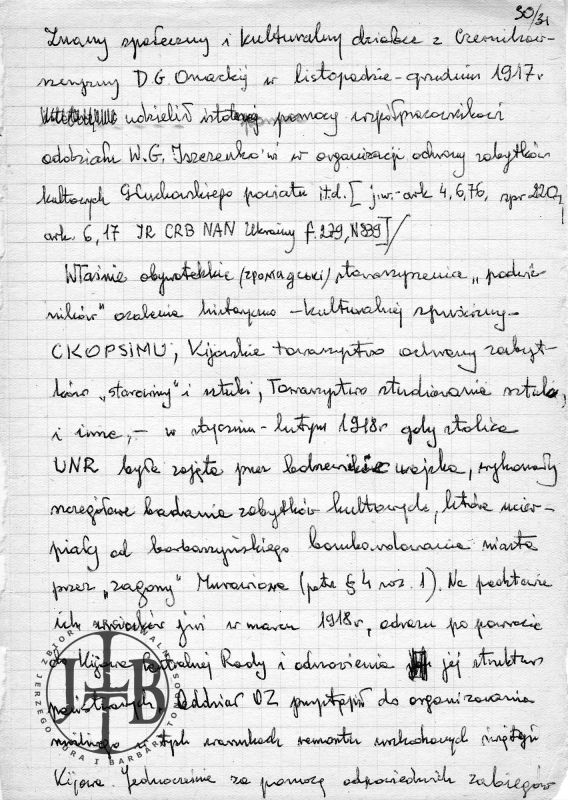 30/31
Znany społeczny i kulturalny działacz z Czernihow-
szczyzny D G Onackij w listopadzie-grudniu 1917r
udzielił istotnej pomocy współpracownikowi
oddziału W.G. Iszczenko'wi w organizacji ochrony zabytków
kultowych Głuchowskiego powiatu itd. [jw.- ark 4, 6, 76, spr 220,
ark 6, 17 IR CRB NAN Ukrainy f. 279, N 939]/
Właśnie obywatelskie (zpomagczoki) stowarzyszenie „podwiż-
ników" ocalenia historyczno-kulturalnej spuścizny-
CKOPSIMU, Kijowskie towarzystwo ochrony zabyt-
ków „starowiny" i sztuki, Towarzystwo studiowania sztuki,
i inne,- w styczniu-lutym 1918r gdy stolica
UNR była zajęta przez bolszewickie wojska, wykonały
szczegółowe badania zabytków kultowych, które ucier-
piały od barbarzyńskiego bombardowania miasta
przez „zagony" Murawiowa (patrz § 4 roz. 1). Na podstawie
ich wniosków już w marcu 1918r, odrazu po powrocie
do Kijowa Centralnej Rady i odnowienia jej struktur
państwowych, Oddział OZ przystąpił do organizowania
możliwego w tych warunkach remontu uszkodzonych świątyń
Kijowa. Jednocześnie za pomocą odpowiednich zabiegów
ZBIORY
JERZEGO
I BARBARY
JTB